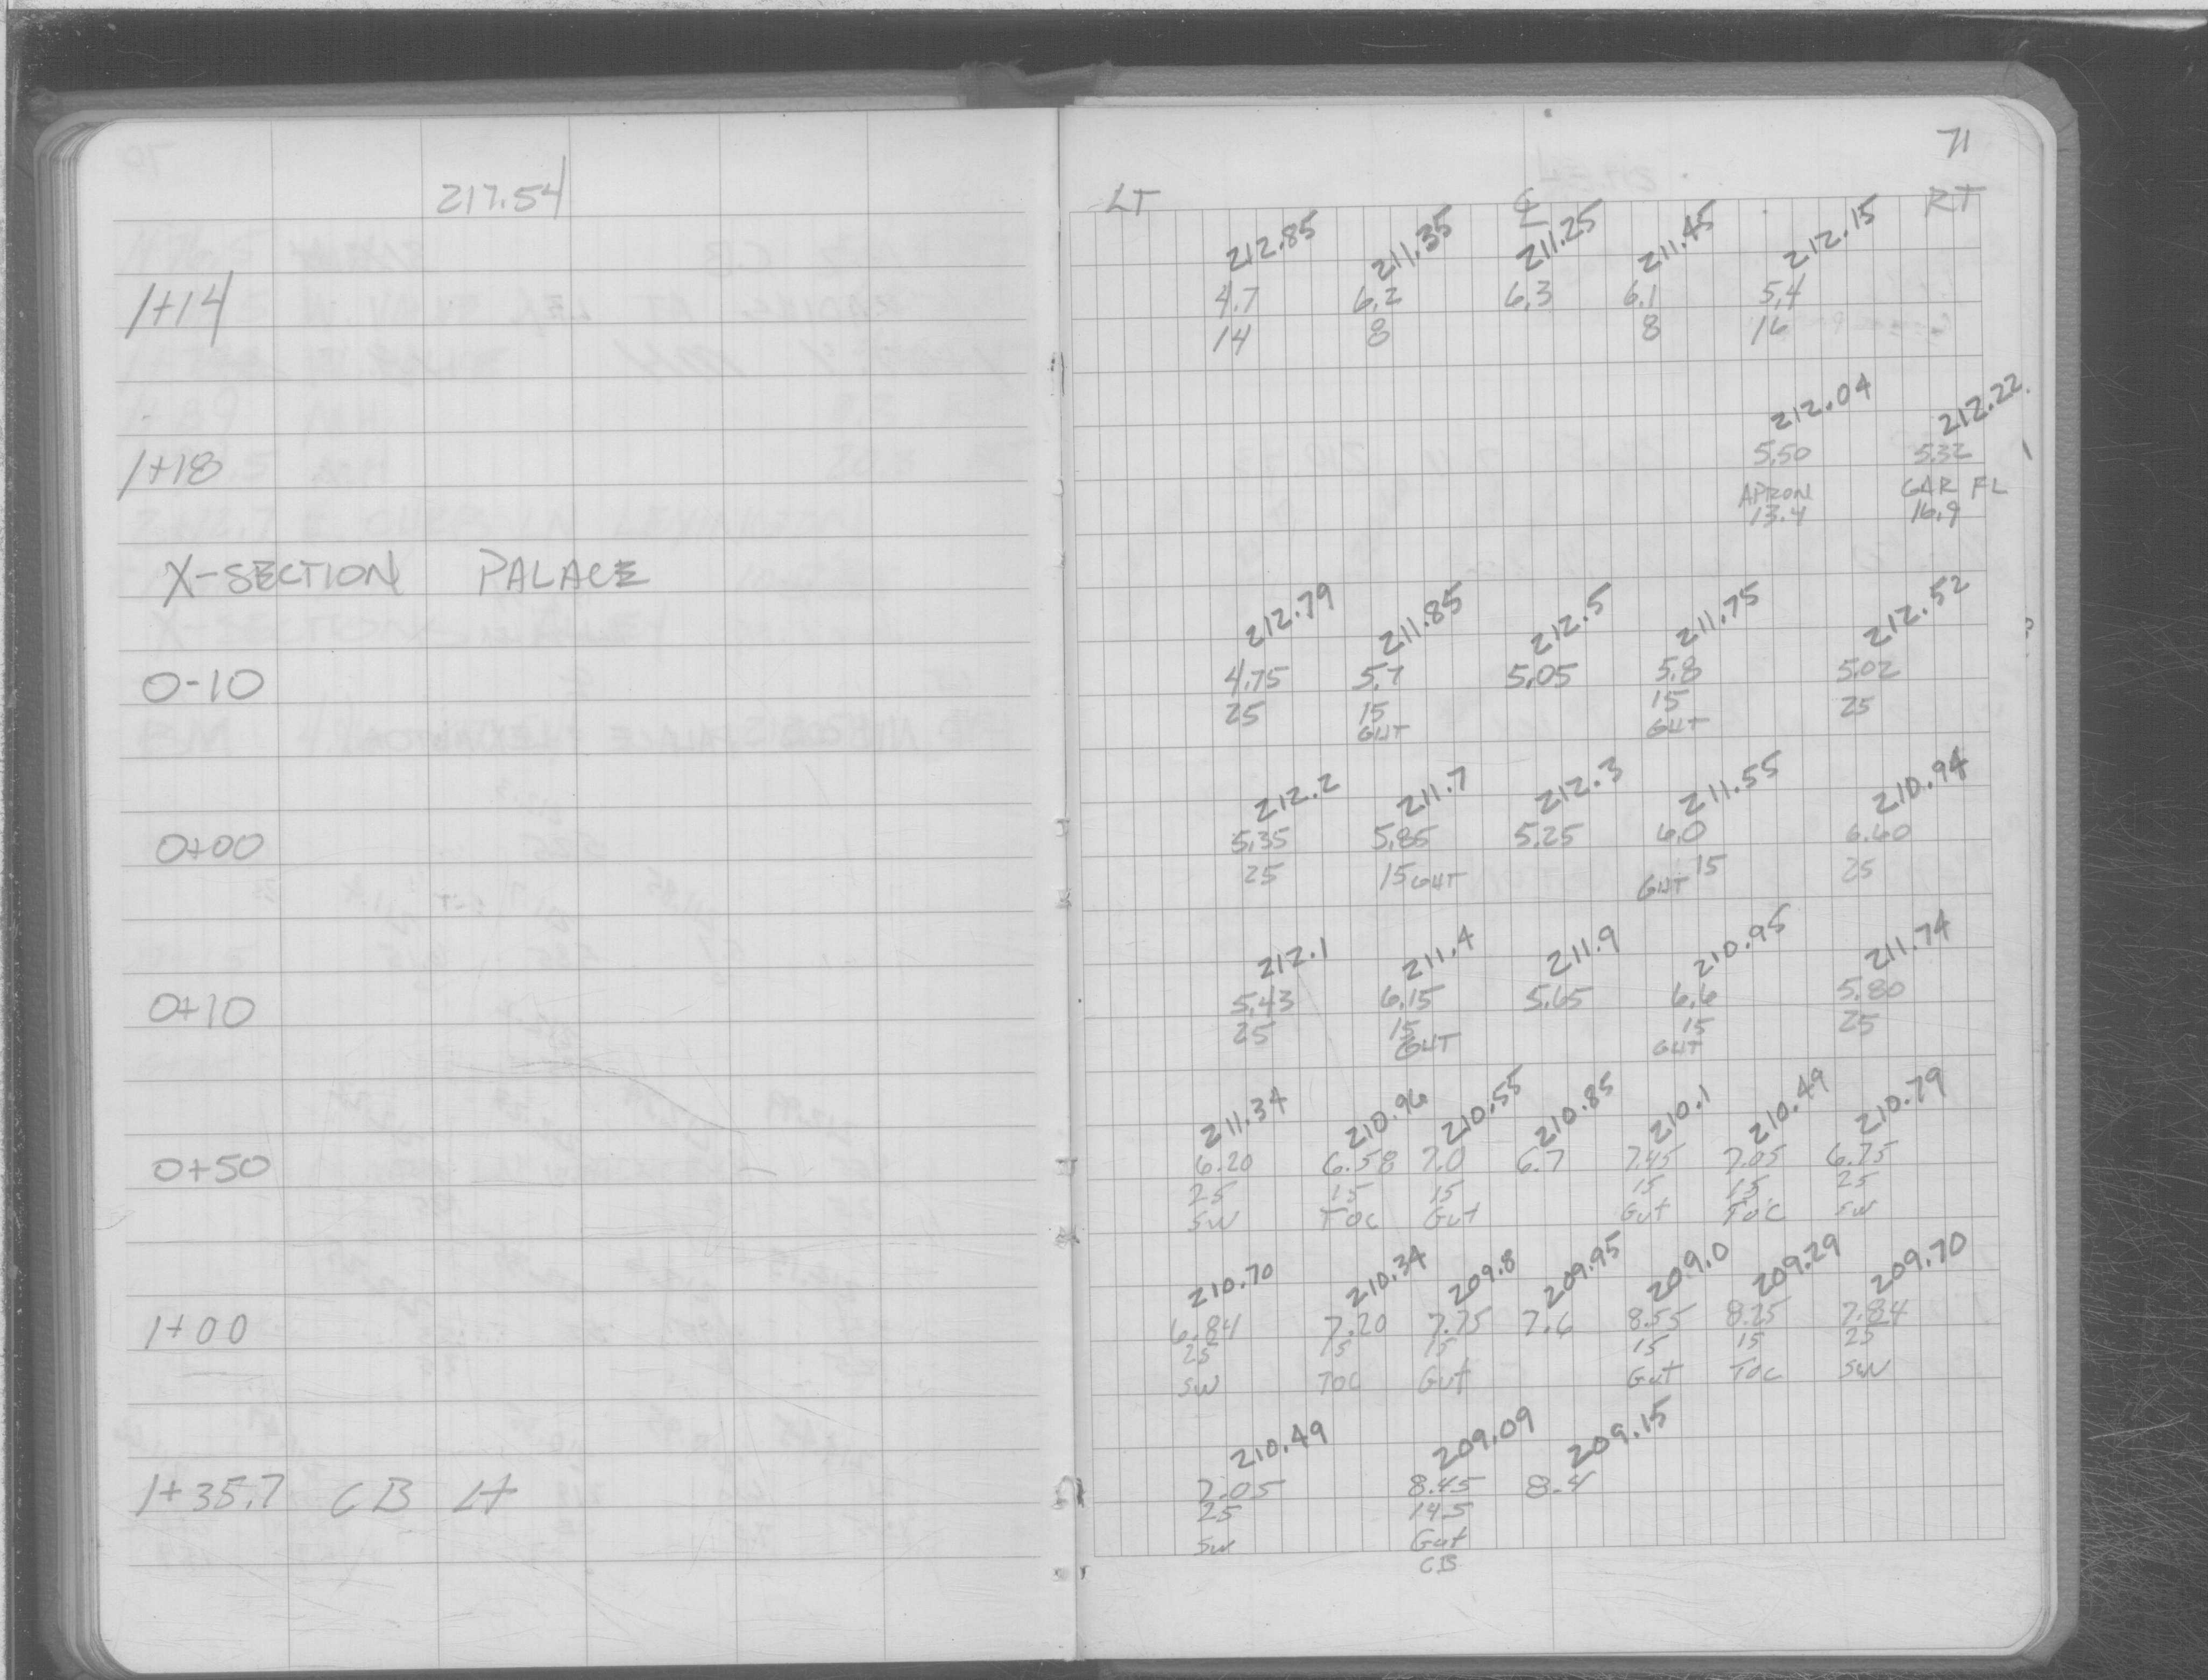 217.54
1+14
1+18
X-SECTION PALACE
0-10
0+00
0+10
0+50
1+00
1+35.7 CB Lt
71
LT ℄ RT
212.85 211.35 211.25 211.45 212.15
4.7 6.2 6.3 6.1 5.4
14 8 8 16
212.04 212.22
5.50 5.32
APRON GAR FL
13.4 16.9
212.79 211.85 212.5 211.75 212.52
4.75 5.7 5.05 5.8 5.02
25 15 15 25
GUT GUT
212.2 211.7 212.3 211.55 210.94
5.35 5.85 5.25 6.0 6.60
25 15 GUT GUT 15 25
212.1 211.4 211.9 210.95 211.74
5.43 6.15 5.65 6.6 5.80
25 15 15 25
GUT GUT
211.34 210.96 210.55 210.85 210.1 210.49 210.79
6.20 6.58 7.0 6.7 7.45 7.05 6.75
25 15 15 15 15 25
SW TOC Gut Gut TOC SW
210.70 210.34 209.8 209.95 209.0 209.29 209.70
6.84 7.20 7.75 7.6 8.55 8.25 7.84
25 15 15 15 15 25
SW TOC Gut Gut TOC SW
210.49 209.09 209.15
7.05 8.45 8.4
25 14.5
SW Gut
CB